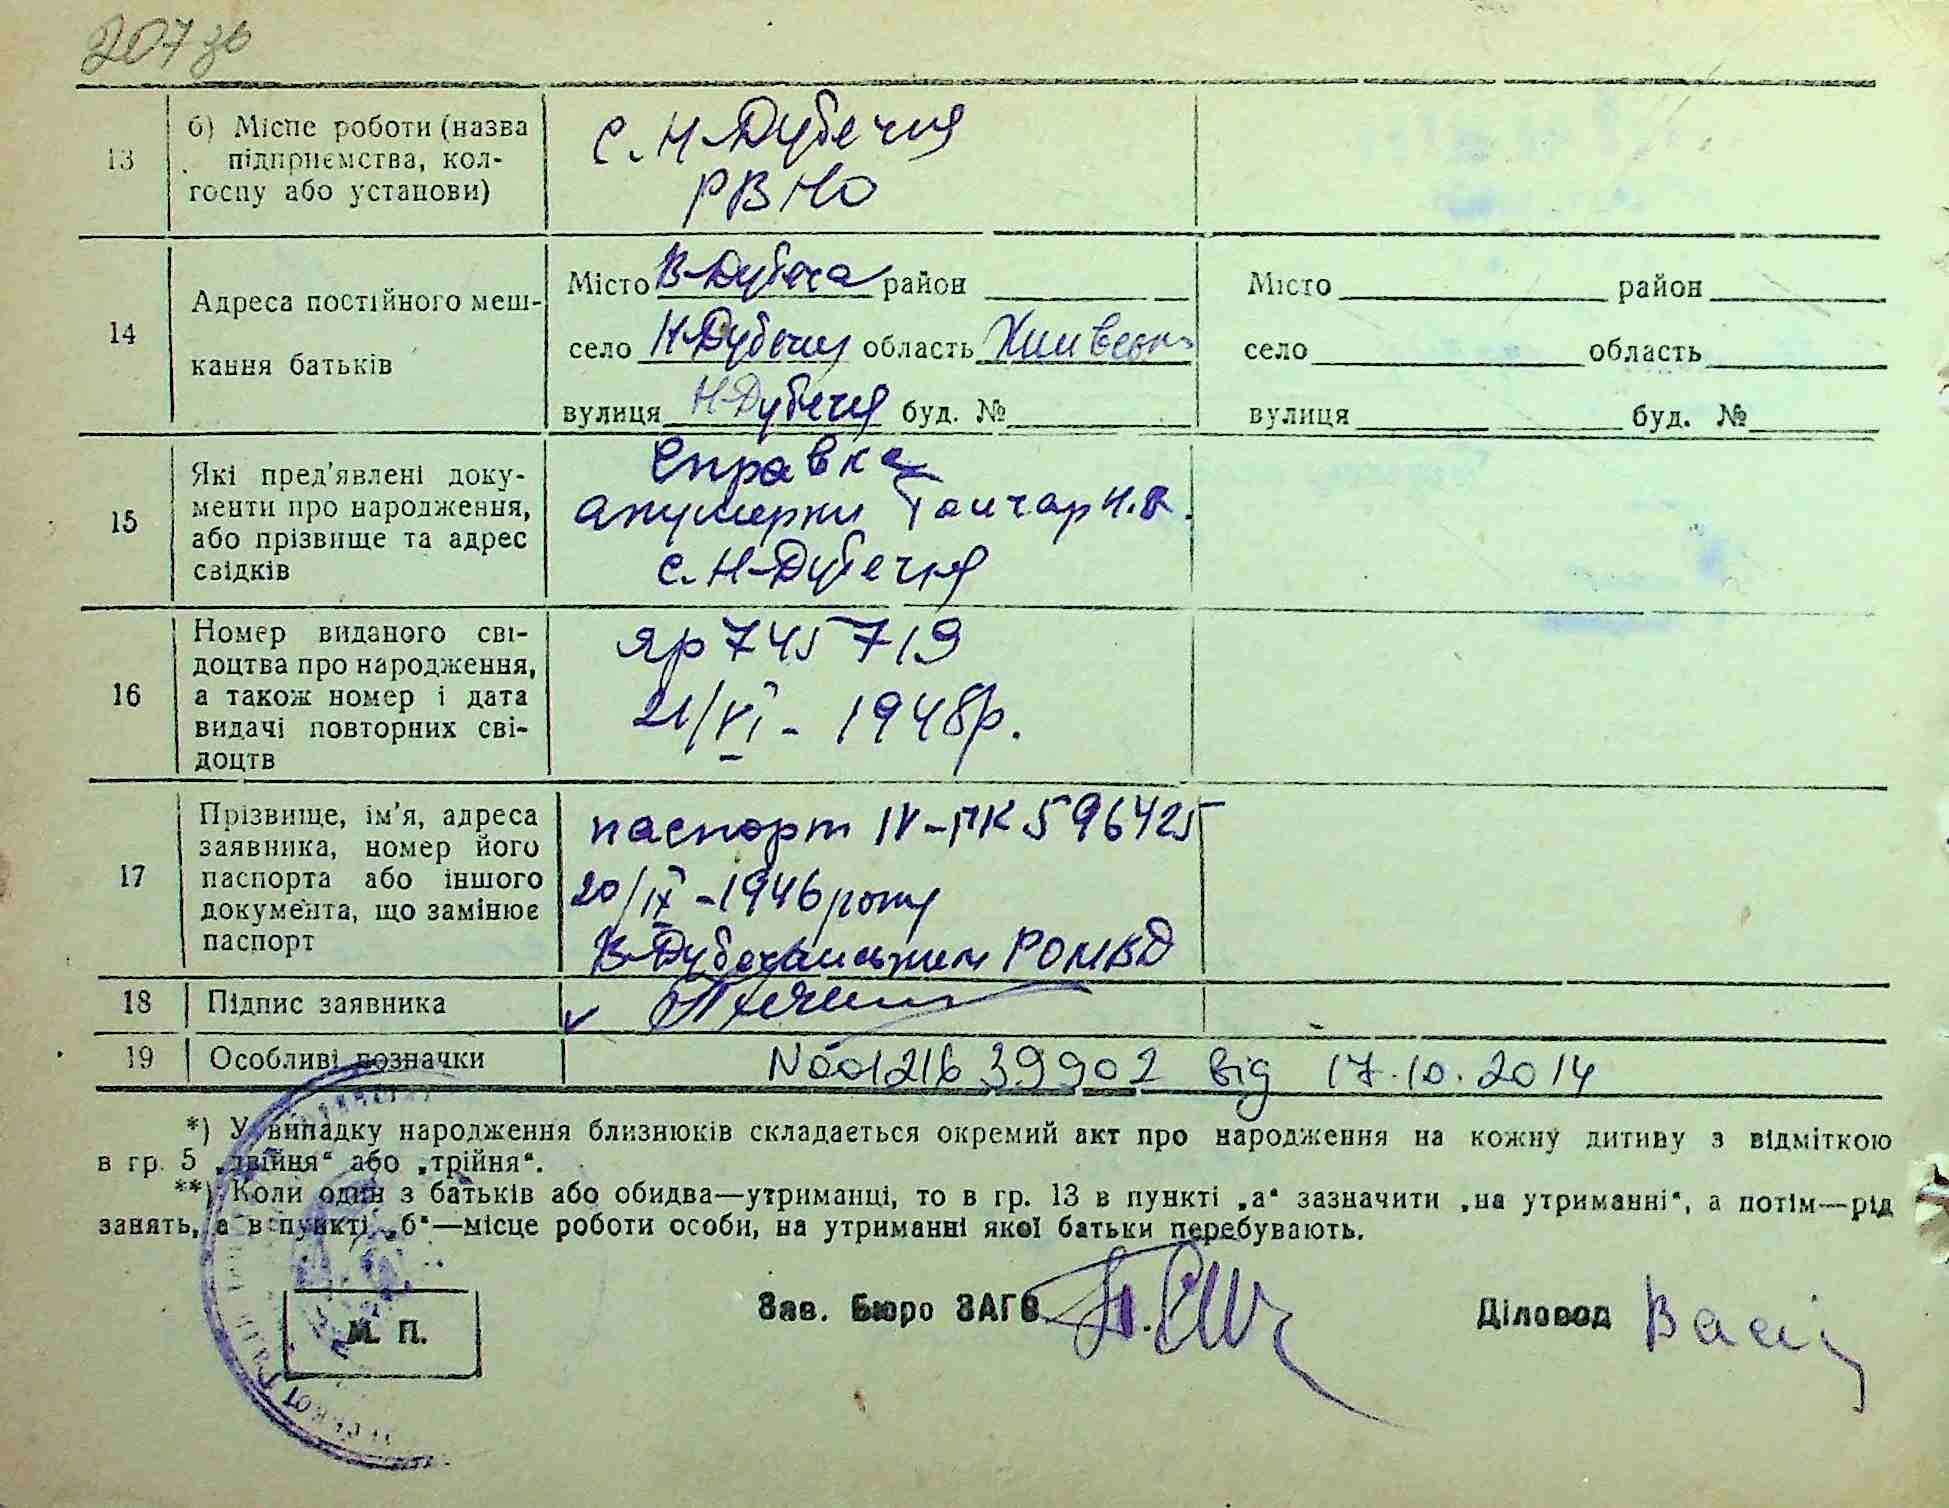 207 зв
13 б) Місце роботи (назва підприємства, колгоспу або установи)
с. Н-Дубечня
РВНО
14 Адреса постійного мешкання батьків
Місто В-Дубеча район Місто район
село Н-Дубечня область Київськ село область
вулиця Н-Дубечня буд. № вулиця буд. №
15 Які пред'явлені документи про народження, або прізвище та адрес свідків
Справка
акушерки Гончар Н.В.
с. Н-Дубечня
16 Номер виданого свідоцтва про народження, а також номер і дата видачі повторних свідоцтв
яр 745719
21/VI - 1948р.
17 Прізвище, ім'я, адреса заявника, номер його паспорта або іншого документа, що замінює паспорт
паспорт IV-ПК 596425
20/IX - 1946 року
В-Дубечанським РОМВД
18 Підпис заявника
19 Особливі позначки
№00121639902 від 17.10.2014
*) У випадку народження близнюків складається окремий акт про народження на кожну дитину з відміткою
в гр. 5 „двійня“ або „трійня“.
**) Коли один з батьків або обидва—утриманці, то в гр. 13 в пункті „а“ зазначити „на утриманні“, а потім—рід
занять, а в пункті „б“—місце роботи особи, на утриманні якої батьки перебувають.
Зав. Бюро ЗАГС Діловод
М. П.